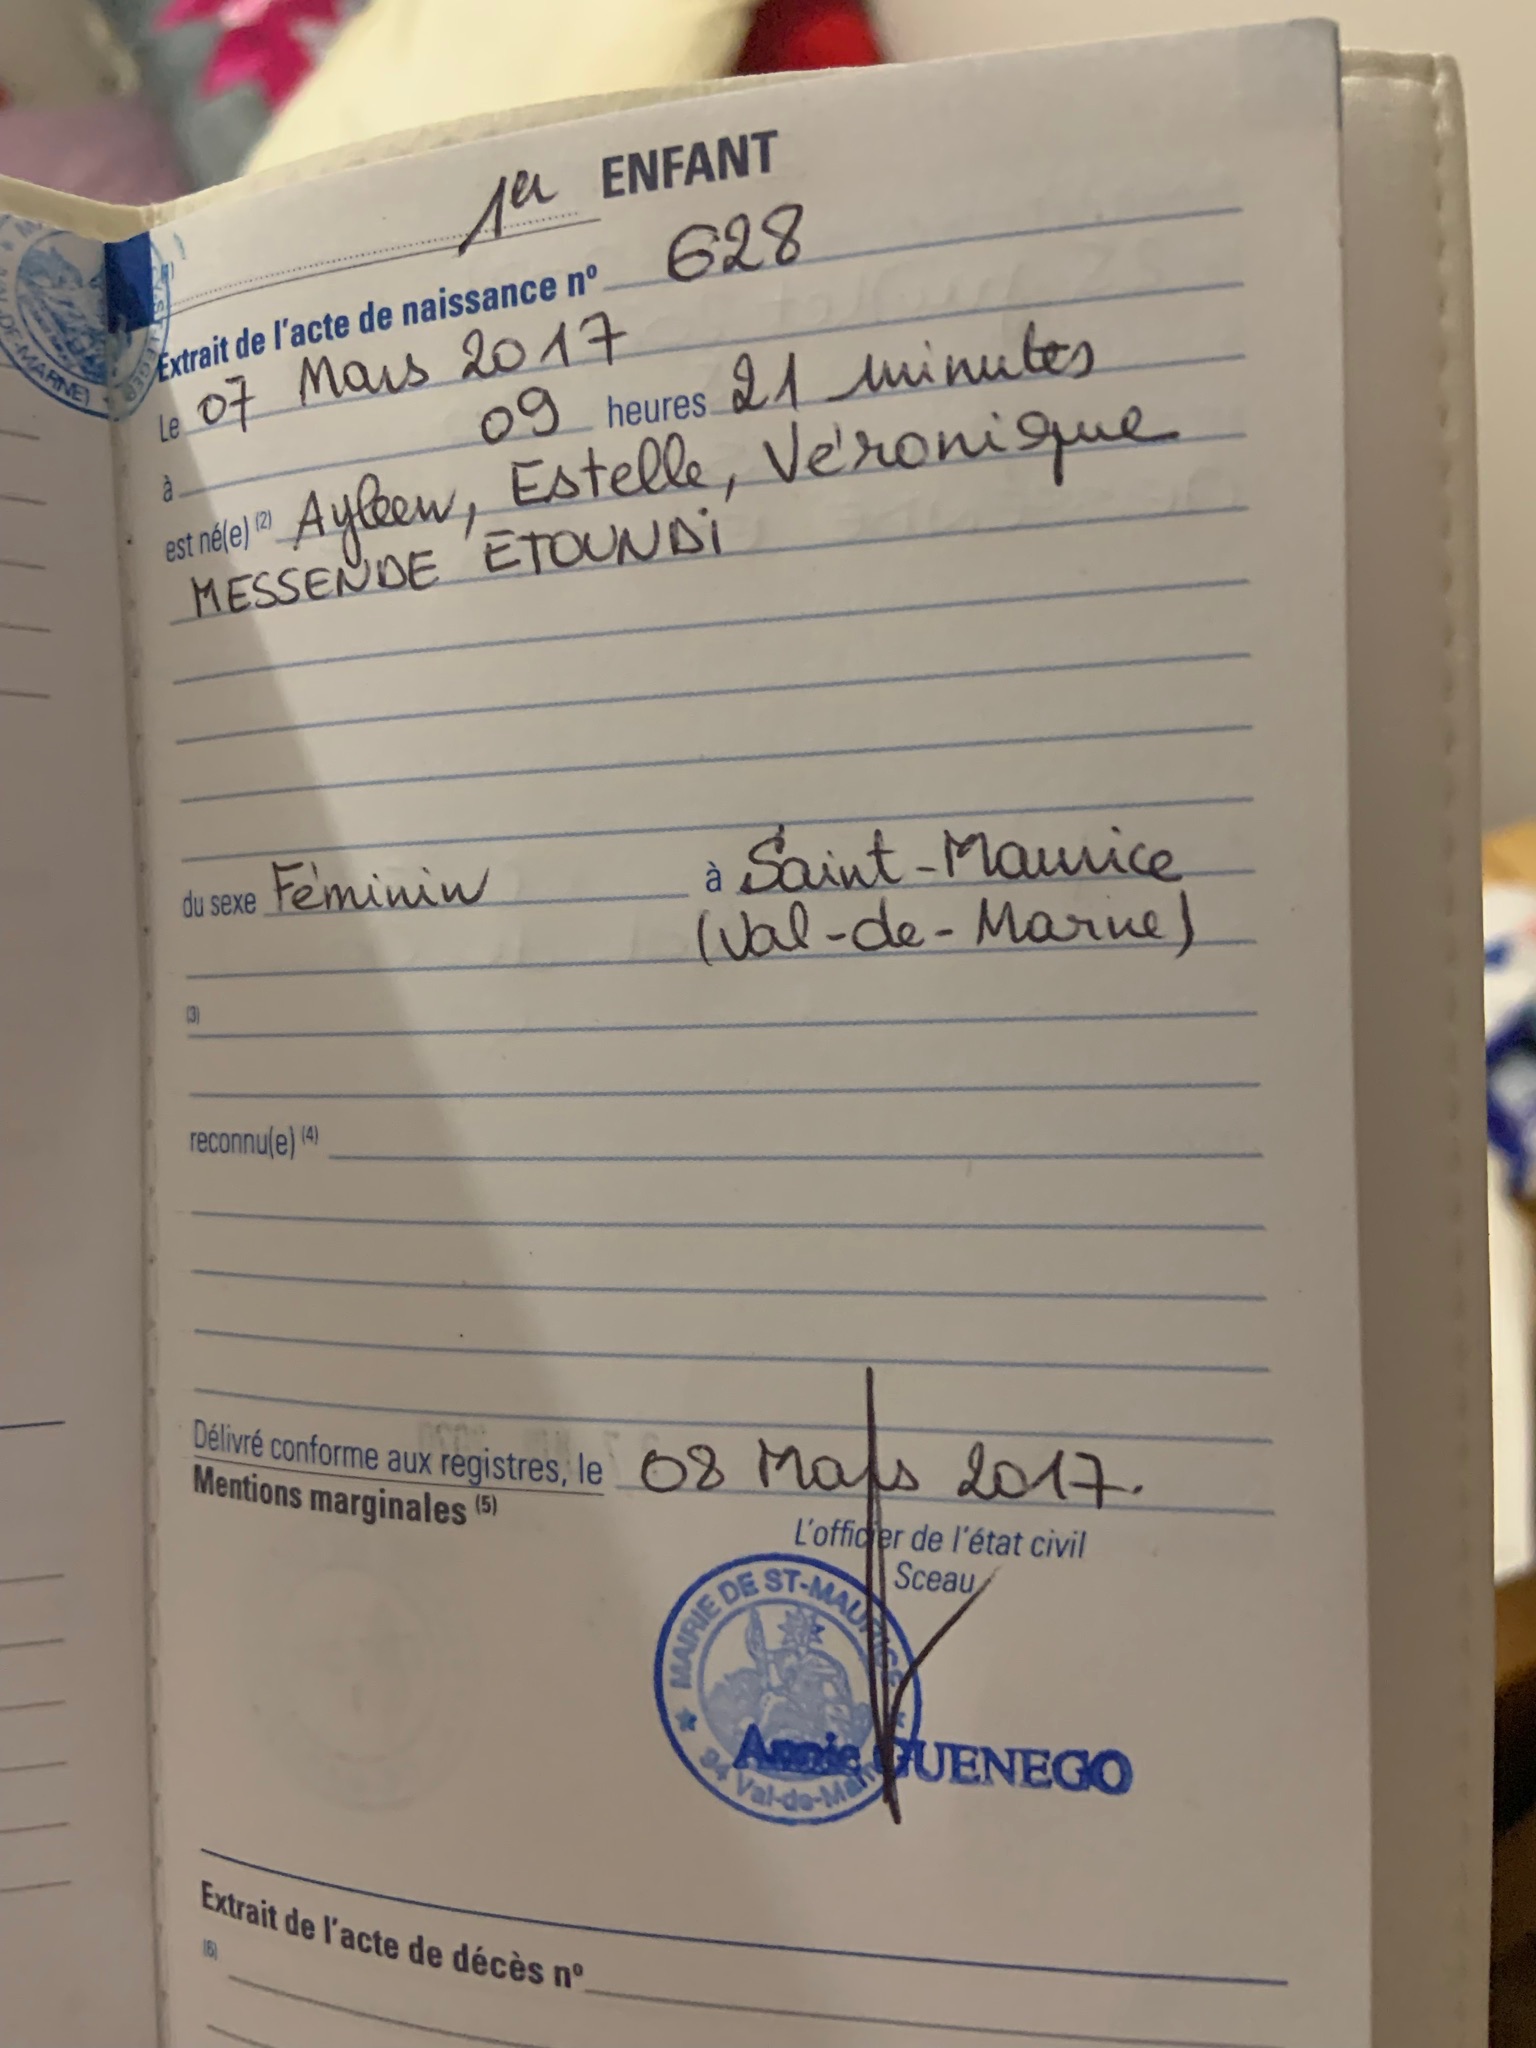 1er ENFANT
Extrait de l'acte de naissance n° 628
Le 07 Mars 2017
à 09 heures 21 minutes
est né(e) (2) Ayleen, Estelle, Véronique
MESSENDE ETOUNDI
du sexe Féminin à Saint-Maurice
(Val-de-Marne)
(3)
reconnu(e) (4)
Délivré conforme aux registres, le 08 Mars 2017.
Mentions marginales (5)
L'officier de l'état civil
Sceau
MAIRIE DE ST-MAURICE
94 Val-de-Marne
Annie GUENEGO
Extrait de l'acte de décès n°
(6)